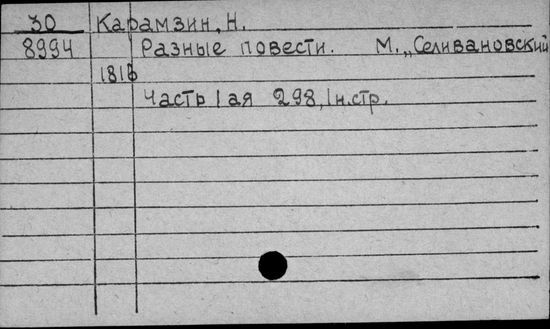 30 Карамзин, Н.
8994 Разные повести. М., „Селивановский
1816
Часть 1 ая 298, 1 н.стр.